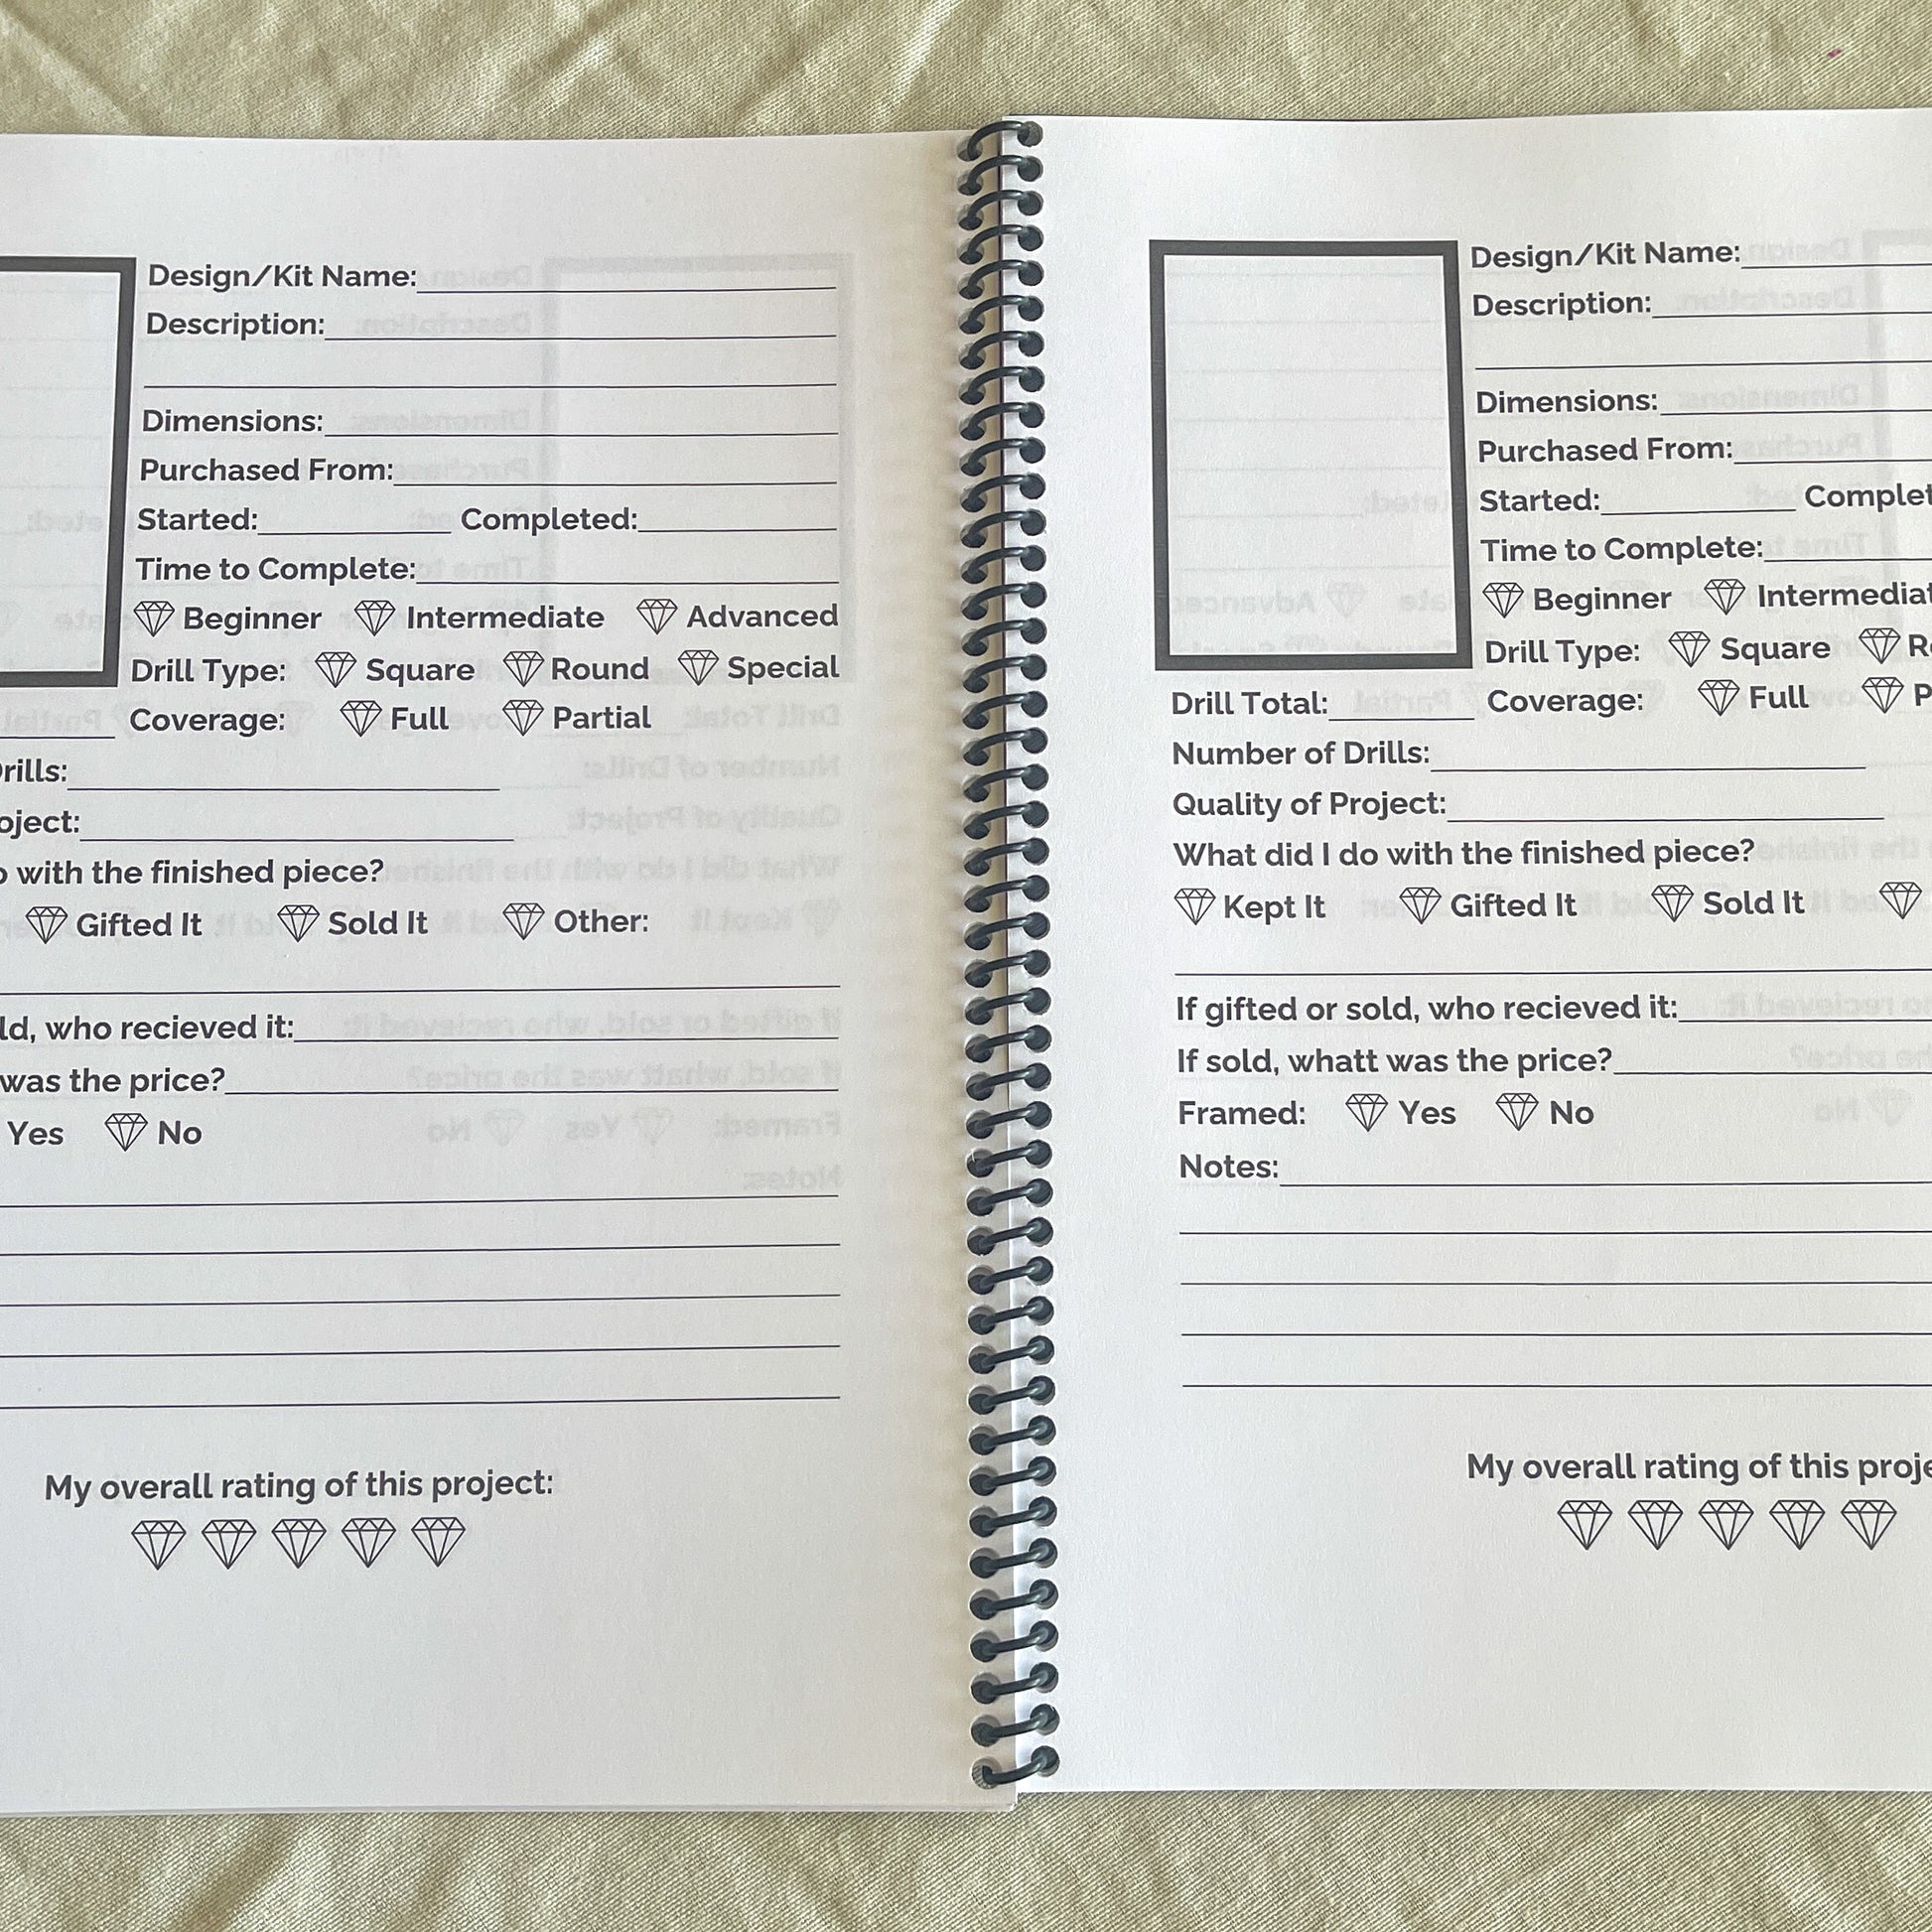 Design/Kit Name:
Description:
Dimensions:
Purchased From:
Started: Completed:
Time to Complete:
Beginner Intermediate Advanced
Drill Type: Square Round Special
Coverage: Full Partial
rills:
oject:
with the finished piece?
Gifted It Sold It Other:
ld, who recieved it:
was the price?
Yes No
My overall rating of this project:
Design/Kit Name:
Description:
Dimensions:
Purchased From:
Started: Complet
Time to Complete:
Beginner Intermediat
Drill Type: Square R
Drill Total: Coverage: Full P
Number of Drills:
Quality of Project:
What did I do with the finished piece?
Kept It Gifted It Sold It
If gifted or sold, who recieved it:
If sold, whatt was the price?
Framed: Yes No
Notes:
My overall rating of this proje